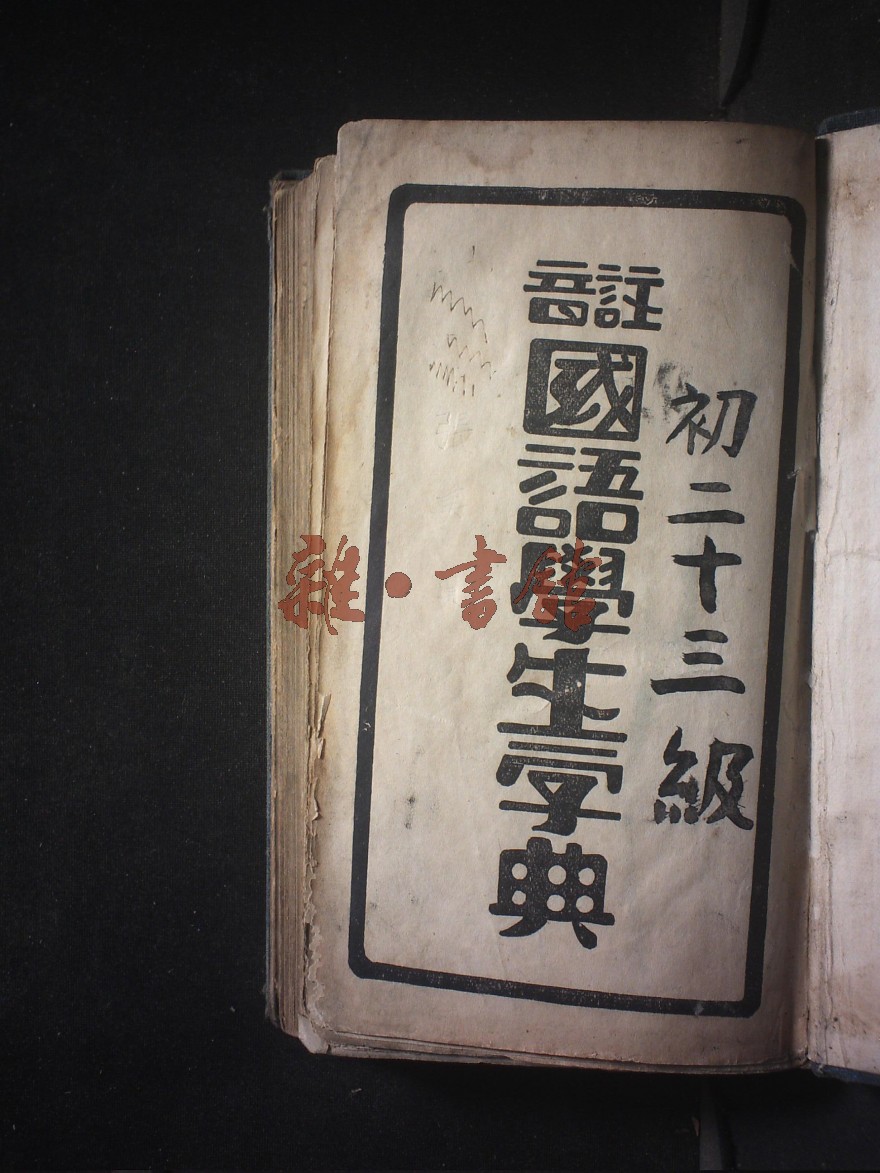 初二十三級
註音
國語學生字典
雜·書館